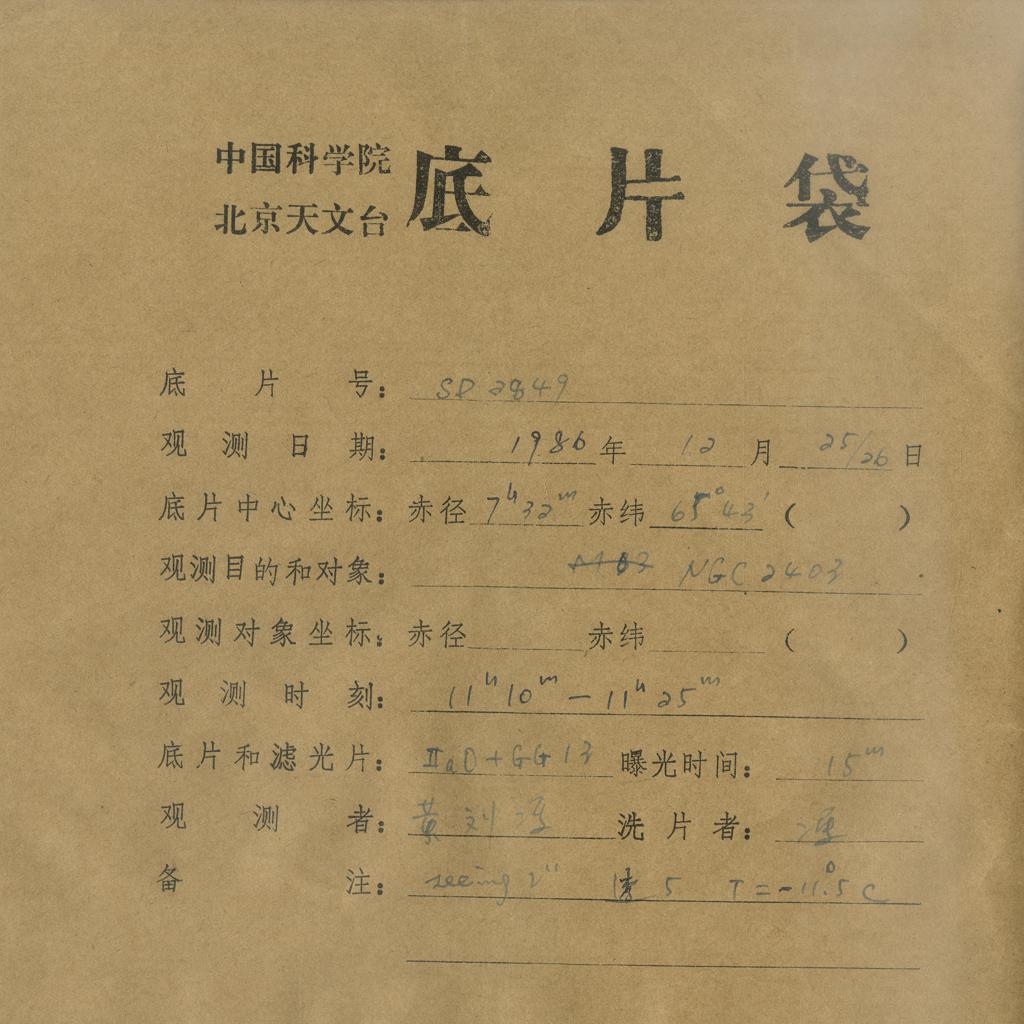 中国科学院
北京天文台
底片袋
底片号：SP 2849
观测日期：1986年12月25/26日
底片中心坐标：赤径 7h32m 赤纬 65°43′ （ ）
观测目的和对象：NGC 2403
观测对象坐标：赤径 赤纬 （ ）
观测时刻：11h10m — 11h25m
底片和滤光片：IIaO+GG13 曝光时间：15m
观测者：黄 刘 洼片者：
备注：seeing 2″ 5 T=-11.5°C